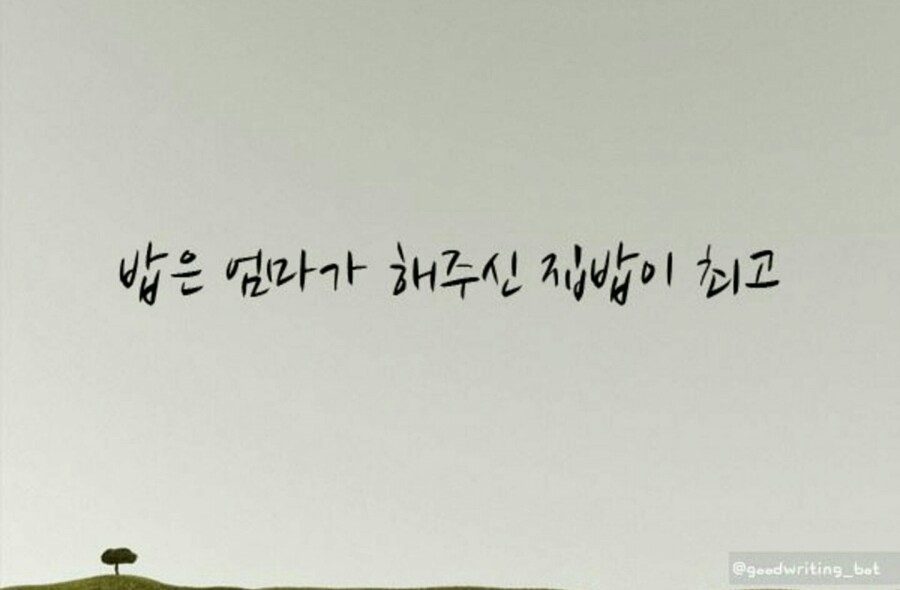 밥은 엄마가 해주신 집밥이 최고
@goodwriting_bot